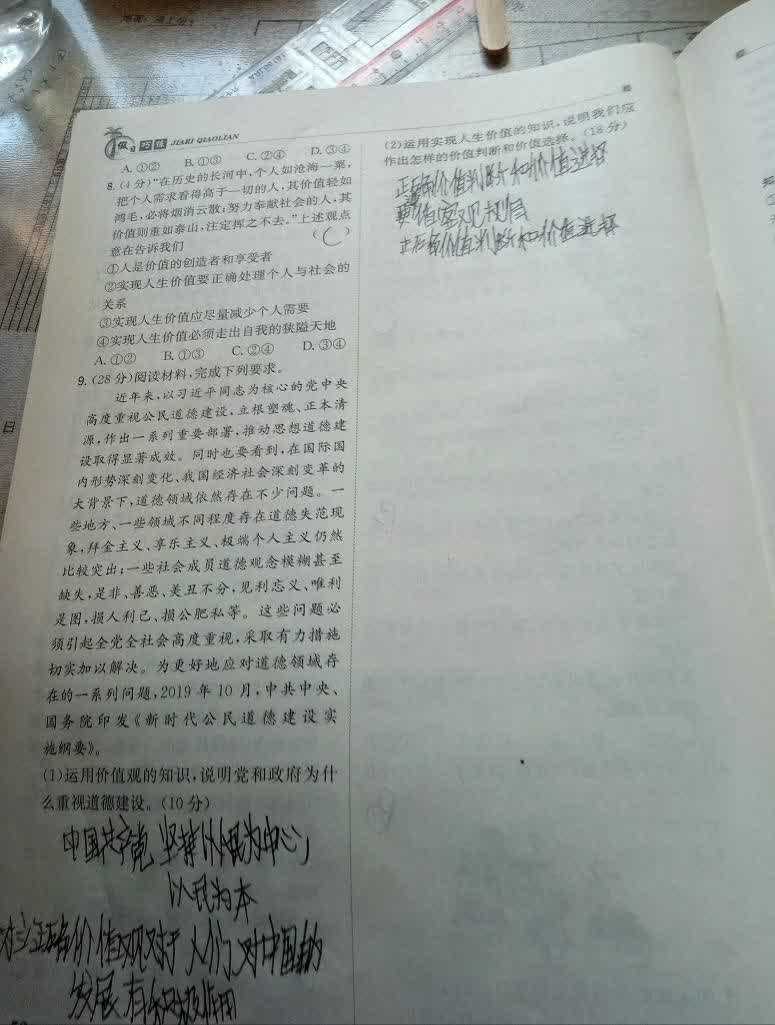 假日 巧练 JIARI QIAOLIAN
A.①② B.①③ C.②④ D.③④
8.(4分)“在历史的长河中,个人如沧海一粟,
把个人需求看得高于一切的人,其价值轻如
鸿毛,必将烟消云散;努力奉献社会的人,其
价值则重如泰山,注定挥之不去。”上述观点
意在告诉我们 ( C )
①人是价值的创造者和享受者
②实现人生价值要正确处理个人与社会的
关系
③实现人生价值应尽量减少个人需要
④实现人生价值必须走出自我的狭隘天地
A.①② B.①③ C.②④ D.③④
9.(28分)阅读材料,完成下列要求。
近年来,以习近平同志为核心的党中央
高度重视公民道德建设,立根塑魂、正本清
源,作出一系列重要部署,推动思想道德建
设取得显著成效。同时也要看到,在国际国
内形势深刻变化、我国经济社会深刻变革的
大背景下,道德领域依然存在不少问题。一
些地方、一些领域不同程度存在道德失范现
象,拜金主义、享乐主义、极端个人主义仍然
比较突出;一些社会成员道德观念模糊甚至
缺失,是非、善恶、美丑不分,见利忘义、唯利
是图,损人利己、损公肥私等。这些问题必
须引起全党全社会高度重视,采取有力措施
切实加以解决。为更好地应对道德领域存
在的一系列问题,2019年10月,中共中央、
国务院印发《新时代公民道德建设实
施纲要》。
(1)运用价值观的知识,说明党和政府为什
么重视道德建设。(10分)
中国共产党 坚持以人民为中心,
以人民为本
正确价值观对于人们,对中国的
发展有积极作用
(2)运用实现人生价值的知识,说明我们应
作出怎样的价值判断和价值选择。(18分)
正确价值判断和价值选择
客观规律
正确价值判断和价值选择